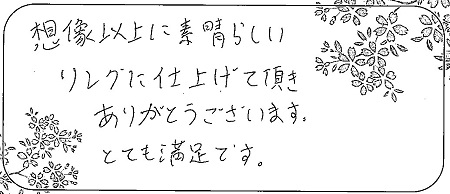 想像以上に素晴らしい
リングに仕上げて頂き
ありがとうございます。
とても満足です。